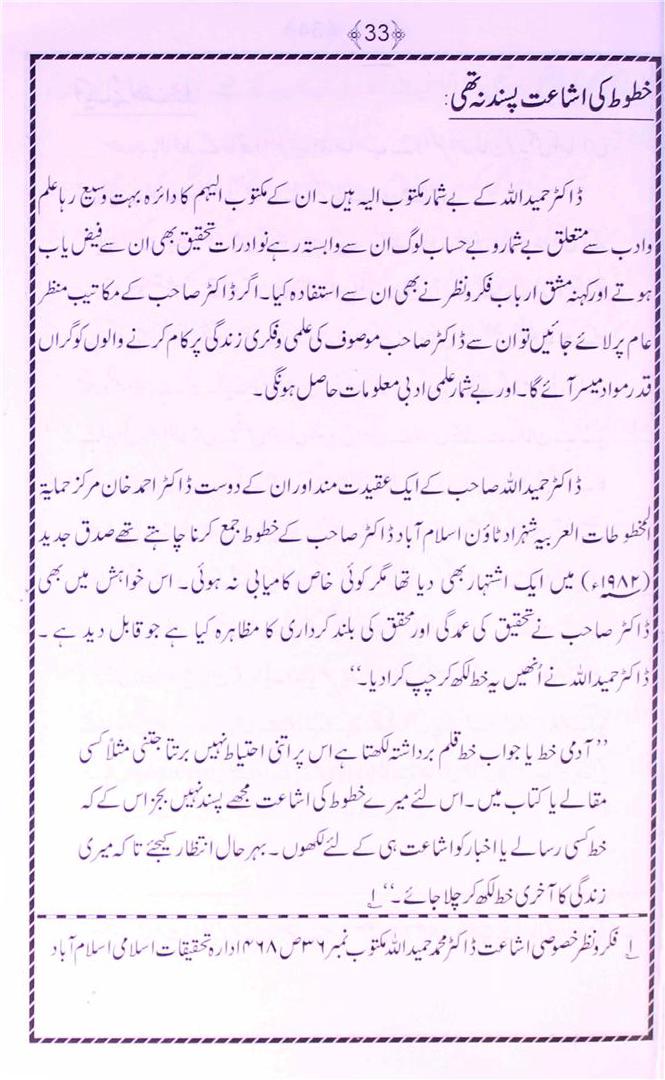 33
خطوط کی اشاعت پسند نہ تھی:
ڈاکٹر حمید اللہ کے بے شمار مکتوب الیہ ہیں۔ ان کے مکتوب الیہم کا دائرہ بہت وسیع رہا علم
وادب سے متعلق بے شمار و بے حساب لوگ ان سے وابستہ رہے نوادرات تحقیق بھی ان سے فیض یاب
ہوتے اور کہنہ مشق ارباب فکر و نظر نے بھی ان سے استفادہ کیا۔ اگر ڈاکٹر صاحب کے مکاتیب منظر
عام پر لائے جائیں تو ان سے ڈاکٹر صاحب موصوف کی علمی و فکری زندگی پر کام کرنے والوں کو گراں
قدر مواد میسر آئے گا۔ اور بے شمار علمی ادبی معلومات حاصل ہونگی۔
ڈاکٹر حمید اللہ صاحب کے ایک عقیدت مند اور ان کے دوست ڈاکٹر احمد خان مرکز حمایۃ
المخطوطات العربیہ شہزاد ٹاؤن اسلام آباد ڈاکٹر صاحب کے خطوط جمع کرنا چاہتے تھے صدق جدید
(۱۹۸۲ء) میں ایک اشتہار بھی دیا تھا مگر کوئی خاص کامیابی نہ ہوئی۔ اس خواہش میں بھی
ڈاکٹر صاحب نے تحقیق کی عمدگی اور محقق کی بلند کرداری کا مظاہرہ کیا ہے جو قابل دید ہے ۔
ڈاکٹر حمید اللہ نے اُنھیں یہ خط لکھ کر چپ کرا دیا۔‘‘
’’ آدمی خط یا جواب خط قلم برداشتہ لکھتا ہے اس پر اتنی احتیاط نہیں برتتا جتنی مثلاً کسی
مقالے یا کتاب میں۔ اس لئے میرے خطوط کی اشاعت مجھے پسند نہیں بجز اس کے کہ
خط کسی رسالے یا اخبار کو اشاعت ہی کے لئے لکھوں۔ بہرحال انتظار کیجئے تا کہ میری
زندگی کا آخری خط لکھ کر چلا جائے۔‘‘ ۱
۱ فکر و نظر خصوصی اشاعت ڈاکٹر محمد حمید اللہ مکتوب نمبر ۳۶ ص ۴۶۸ ادارہ تحقیقات اسلامی اسلام آباد